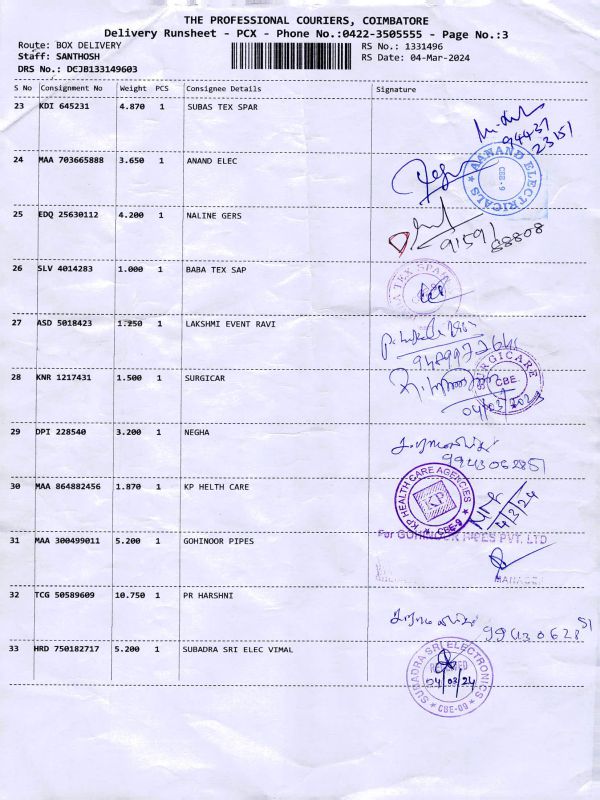 THE PROFESSIONAL COURIERS, COIMBATORE
Delivery Runsheet - PCX - Phone No.:0422-3505555 - Page No.:3
Route: BOX DELIVERY
RS No.: 1331496
Staff: SANTHOSH
RS Date: 04-Mar-2024
DRS No.: DCJB133149603
S No Consignment No Weight PCS Consignee Details Signature
23 KDI 645231 4.870 1 SUBAS TEX SPAR
94437
23151
24 MAA 703665888 3.650 1 ANAND ELEC
AANAND ELECTRICALS
CBE-9
25 EDQ 25630112 4.200 1 NALINE GERS
91591
88808
26 SLV 4014283 1.000 1 BABA TEX SAP
TEX SPAR
27 ASD 5018423 1.250 1 LAKSHMI EVENT RAVI
28 KNR 1217431 1.500 1 SURGICAR
SURGICARE
CBE
29 DPI 228540 3.200 1 NEGHA
9943062851
30 MAA 864882456 1.870 1 KP HELTH CARE
KP HEALTH CARE AGENCIES
KP
CBE-9
4/3/24
31 MAA 300499011 5.200 1 GOHINOOR PIPES
For GOHINOOR PIPES PVT. LTD
32 TCG 50589609 10.750 1 PR HARSHNI
9943062851
33 HRD 750182717 5.200 1 SUBADRA SRI ELEC VIMAL
SUBADRA SRI ELECTRONICS
04/03/24
CBE-09